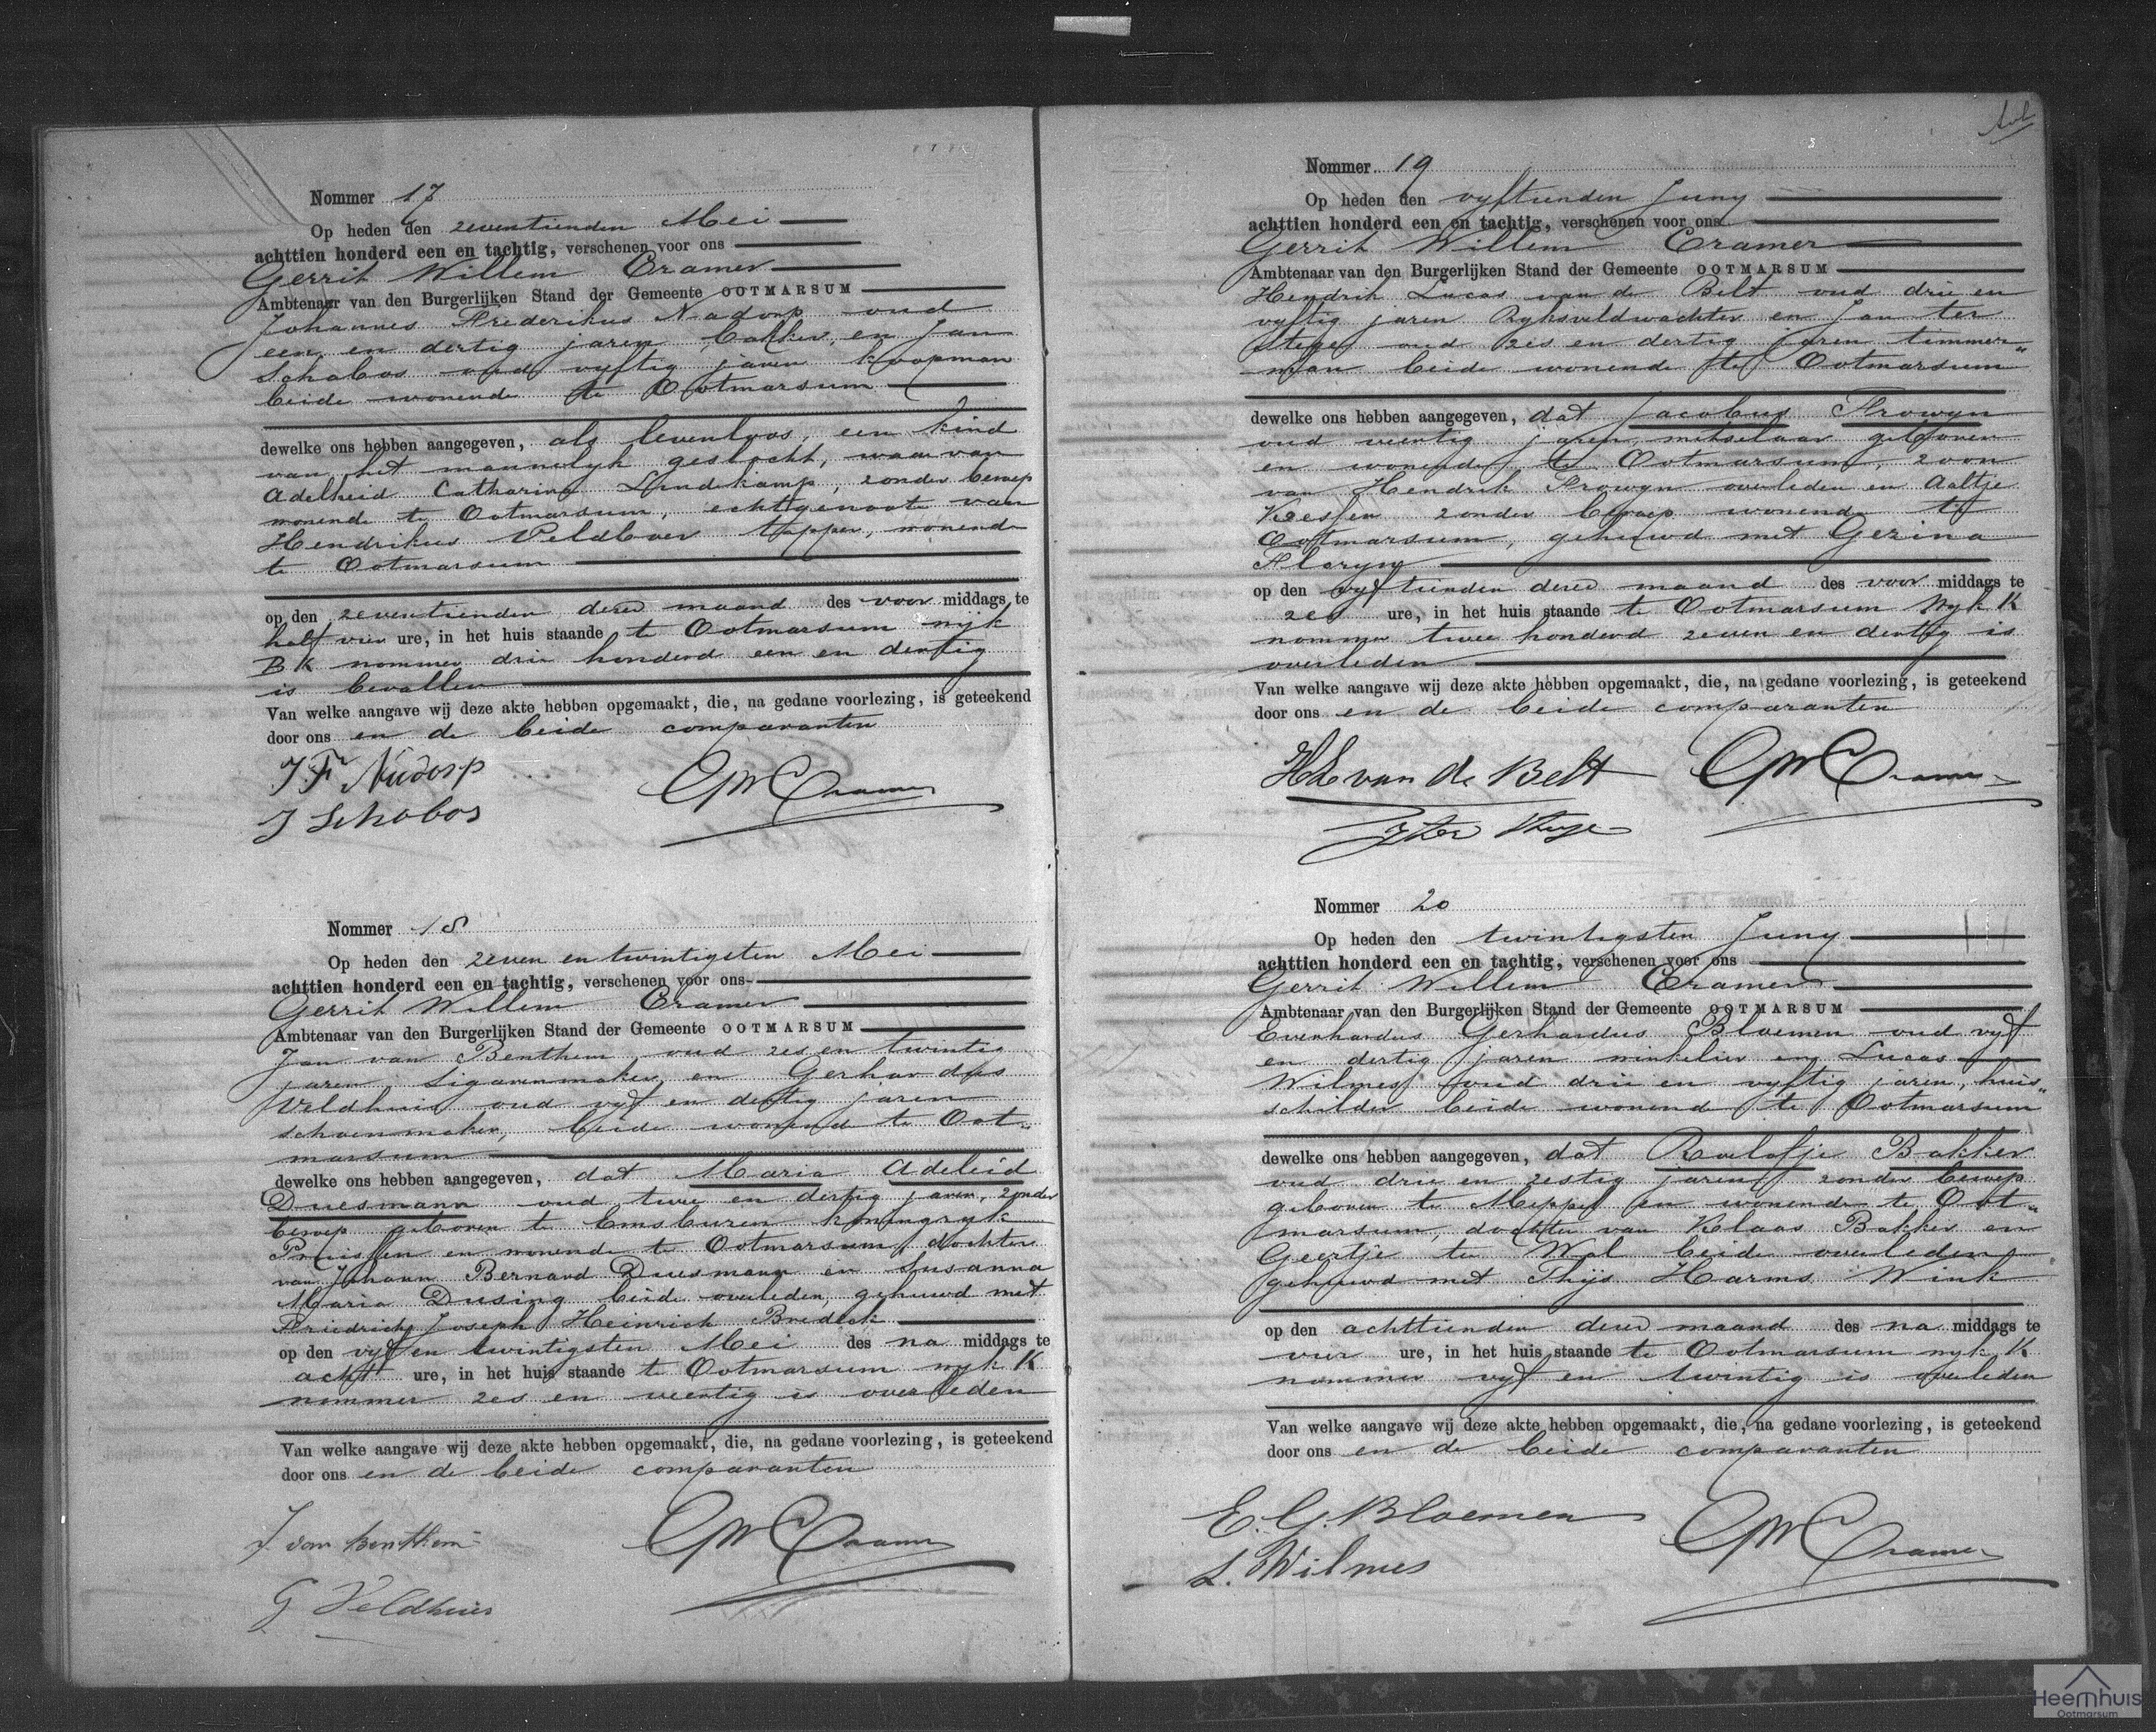 Nommer 17
Op heden den zeventienden Mei
achttien honderd een en tachtig, verschenen voor ons
Gerrit Willem Cramer
Ambtenaar van den Burgerlijken Stand der Gemeente OOTMARSUM
Johannes Frederikus Nadorp oud
een en dertig jaren bakker, en Jan
Schabos oud vyftig jaren koopman
beide wonende te Ootmarsum
dewelke ons hebben aangegeven, als levenloos, een kind
van het mannelyk geslacht, waarvan
Adelheid Catharina Lindekamp, zonder beroep
wonende te Ootmarsum, echtgenoote van
Hendrikus Veldboer tapper, wonende
te Ootmarsum
op den zeventienden dezer maand des voor middags te
half vier ure, in het huis staande te Ootmarsum wijk
B K nommer drie honderd een en dertig
is bevallen
Van welke aangave wij deze akte hebben opgemaakt, die, na gedane voorlezing, is geteekend
door ons en de beide comparanten
J. F. Nadorp GW Cramer
J Schabos
Nommer 18
Op heden den zeven en twintigsten Mei
achttien honderd een en tachtig, verschenen voor ons
Gerrit Willem Cramer
Ambtenaar van den Burgerlijken Stand der Gemeente OOTMARSUM
Jan van Benthem oud zes en twintig
jaren Sigarenmaker en Gerhardus
Veldhuis oud vyf en dertig jaren
schoenmaker, beide wonend te Oot„
marsum
dewelke ons hebben aangegeven, dat Maria Adeleid
Duesmann oud twee en dertig jaren, zonder
beroep geboren te Emsburen koningryk
Pruissen en wonende te Ootmarsum, dochter
van Johann Bernard Duesmann en Susanna
Maria Dusing beide overleden, gehuwd met
Friedrich Joseph Heinrich Bredeck
op den vyf en twintigsten Mei des na middags te
acht ure, in het huis staande te Ootmarsum wyk K
nommer zes en veertig is overleden
Van welke aangave wij deze akte hebben opgemaakt, die, na gedane voorlezing, is geteekend
door ons en de beide comparanten
J. van Benthem GW Cramer
G Veldhuis
Nommer 19
Op heden den vyftienden Juny
achttien honderd een en tachtig, verschenen voor ons
Gerrit Willem Cramer
Ambtenaar van den Burgerlijken Stand der Gemeente OOTMARSUM
Hendrik Lucas van de Belt oud drie en
vyftig jaren Ryksveldwachter en Jan ter
Stege oud zes en dertig jaren timmer„
man beide wonende te Ootmarsum
dewelke ons hebben aangegeven, dat Jacobus Frowyn
oud veertig jaren, metselaar geboren
en wonende te Ootmarsum, zoon
van Hendrik Frowyn overleden en Aaltje
zonder beroep wonende te
Ootmarsum, gehuwd met Gezina
Floryn
op den vyftienden dezer maand des voor middags te
zes ure, in het huis staande te Ootmarsum Wyk K
nommer twee honderd zeven en dertig is
overleden
Van welke aangave wij deze akte hebben opgemaakt, die, na gedane voorlezing, is geteekend
door ons en de beide comparanten
H L van de Belt GW Cramer
J ter Stege
Nommer 20
Op heden den twintigsten Juny
achttien honderd een en tachtig, verschenen voor ons
Gerrit Willem Cramer
Ambtenaar van den Burgerlijken Stand der Gemeente OOTMARSUM
Everhardus Gerhardus Bloemen oud vyf
en dertig jaren winkelier en Lucas
Wilmes oud drie en vyftig jaren, huis„
schilder beide wonend te Ootmarsum
dewelke ons hebben aangegeven, dat Roelofje Bakker
oud drie en zestig jaren zonder beroep
geboren te Meppel en wonende te Oot„
marsum, dochter van Klaas Bakker en
Geertje te Wal beide overleden
gehuwd met Thijs Harms Wink
op den achttienden dezer maand des na middags te
vier ure, in het huis staande te Ootmarsum wyk K
nommer vyf en twintig is overleden
Van welke aangave wij deze akte hebben opgemaakt, die, na gedane voorlezing, is geteekend
door ons en de beide comparanten
E. G. Bloemen GW Cramer
L. Wilmes
Heemhuis
Ootmarsum